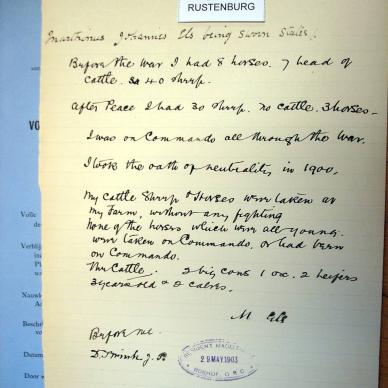 RUSTENBURG
Marthinus Johannes Els being sworn States:
Before the War I had 8 horses. 7 head of
cattle. 40 sheep.
After Peace I had 30 sheep. no cattle. 3 horses -
I was on Commando all through the War.
I took the oath of neutrality in 1900.
My Cattle Sheep & Horses were taken at
my Farm, without any fighting
None of the horses which were all young.
were taken on Commando, or had been
on Commando.
The Cattle. 2 big cows 1 ox. 2 heifers
3 years old & 2 calves.
M Els
Before me.
J. P.
RESIDENT MAGISTRATE
29 MAY 1903
BOSHOF, O.R.C.
VO
Volle
de
Verblij
Nauwk
Beschri
Datum
Door w